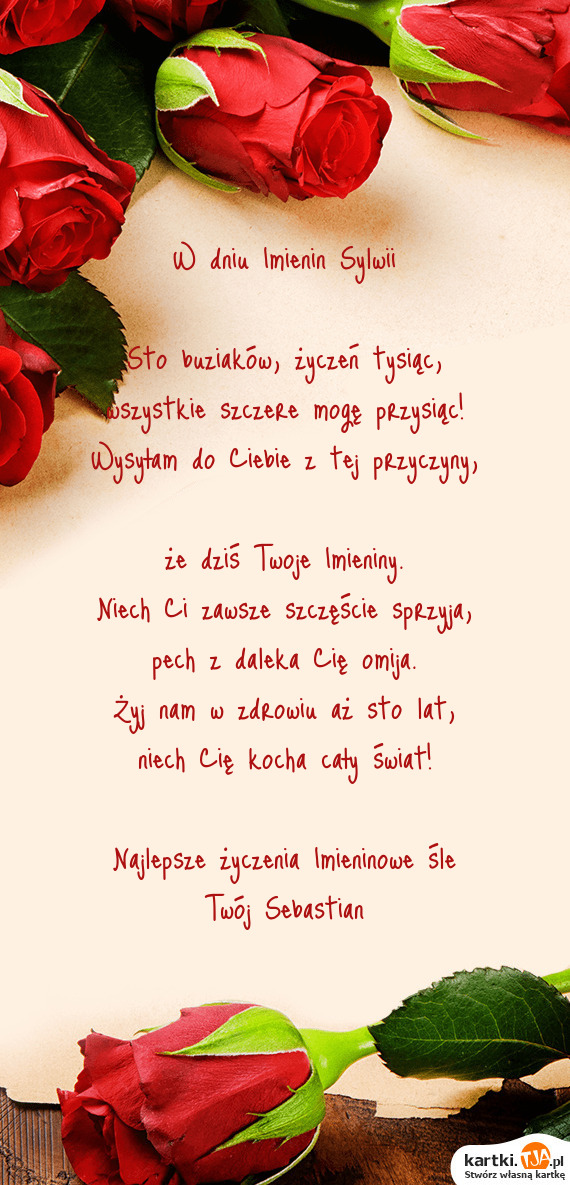 W dniu Imienin Sylwii
Sto buziaków, życzeń tysiąc,
wszystkie szczere mogę przysiąc!
Wysyłam do Ciebie z tej przyczyny,
że dziś Twoje Imieniny.
Niech Ci zawsze szczęście sprzyja,
pech z daleka Cię omija.
Żyj nam w zdrowiu aż sto lat,
niech Cię kocha cały świat!
Najlepsze życzenia Imieninowe śle
Twój Sebastian
kartki.TJA.pl
Stwórz własną kartkę